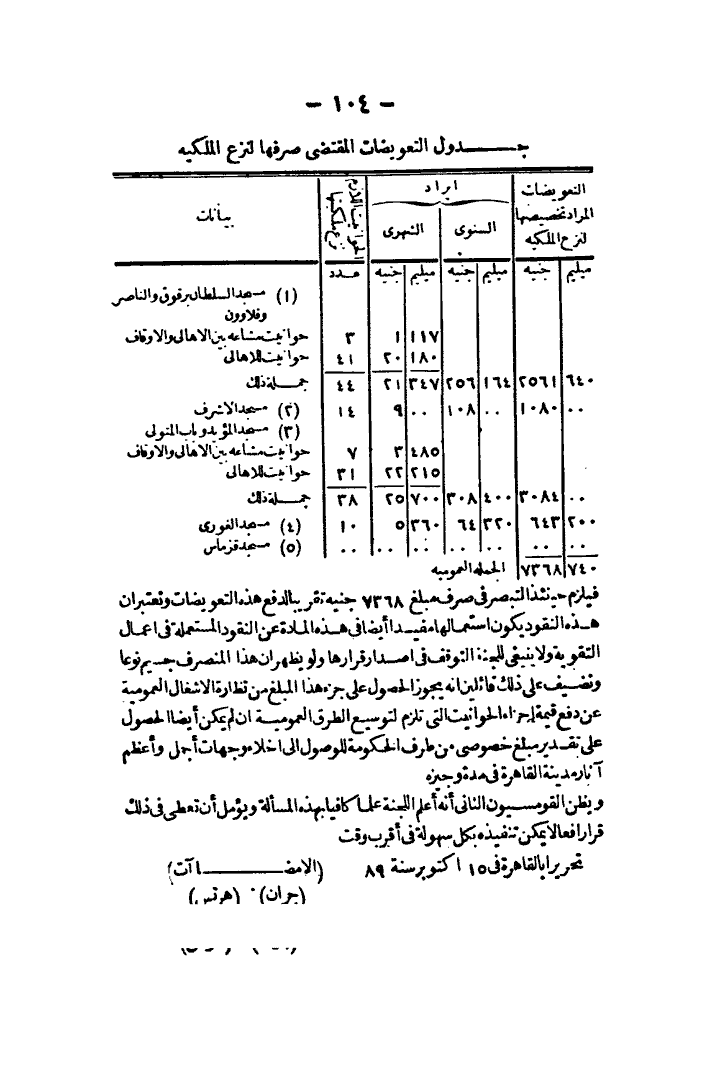 — ١٠٤ —
جـــــدول التعويضات المقتضى صرفها لنزع الملكيه
التعويضات المراد تخصيصها لنزع الملكيه | ايراد | الحوانيت اللازم نزع ملكيتها | بيانات
السنوى | الشهرى
مليم | جنيه | مليم | جنيه | مليم | جنيه | عـدد
(١) مسجد السلطان برقوق والناصر
وقلاوون
١١٧ | ١ | ٣ | حوانيت مشاعه بين الاهالى والاوقاف
١٨٠ | ٢٠ | ٤١ | حوانيت للاهالى
٦٤٠ | ٢٥٦١ | ١٦٤ | ٢٥٦ | ٣٤٧ | ٢١ | ٤٤ | جمـــلة ذلك
٠٠ | ١٠٨٠ | ٠٠ | ١٠٨ | ٠٠ | ٩ | ١٤ | (٢) مسجد الاشرف
(٣) مسجد المؤيد وباب المتولى
٤٨٥ | ٣ | ٧ | حوانيت مشاعه بين الاهالى والاوقاف
٢١٥ | ٢٢ | ٣١ | حوانيت للاهالى
٠٠ | ٣٠٨٤ | ٤٠٠ | ٣٠٨ | ٧٠٠ | ٢٥ | ٣٨ | جمـــلة ذلك
٢٠٠ | ٦٤٣ | ٣٢٠ | ٦٤ | ٣٦٠ | ٥ | ١٠ | (٤) مسجد الغورى
٠٠ | ٠٠ | ٠٠ | ٠٠ | ٠٠ | ٠٠ | ٠٠ | (٥) مسجد قزماس
٧٤٠ | ٧٣٦٨ | الجمله العموميه
فيلزم حينئذ التبصر فى صرف مبلغ ٧٣٦٨ جنيه تقريبا لدفع هذه التعويضات ونعتبر ان
هـذه النقود يكون استعمالها مفيدا أيضا فى هـذه المادة عن النقود المستعملة فى اعمال
التقوية ولا ينبغى للجنة التوقف فى اصدار قرارها ولو يظهر ان هذا المنصرف جسيم نوعا
ونضيف على ذلك قائلين انه يجوز الحصول على جزء هذا المبلغ من نظارة الاشغال العمومية
عن دفع قيمة إجزاء الحوانيت التى تلزم لتوسيع الطرق العموميـة ان لم يمكن أيضا الحصول
على تقدير مبلغ خصوصى من طرف الحكومة للوصول الى اخلاء وجهات أجمل وأعظم
آثار مدينة القاهرة فى مدة وجيزه
ويظن القومسيون الثانى أنه أعلم اللجنة علما كافيا بهذه المسألة ويؤمل أن تعطى فى ذلك
قرارا فعالا يمكن تنفيذه بكل سهولة فى أقرب وقت
تحريرا بالقاهرة فى ١٥ اكتوبر سنة ٨٩ (الامضــــا آت)
(جران) (هرتس)